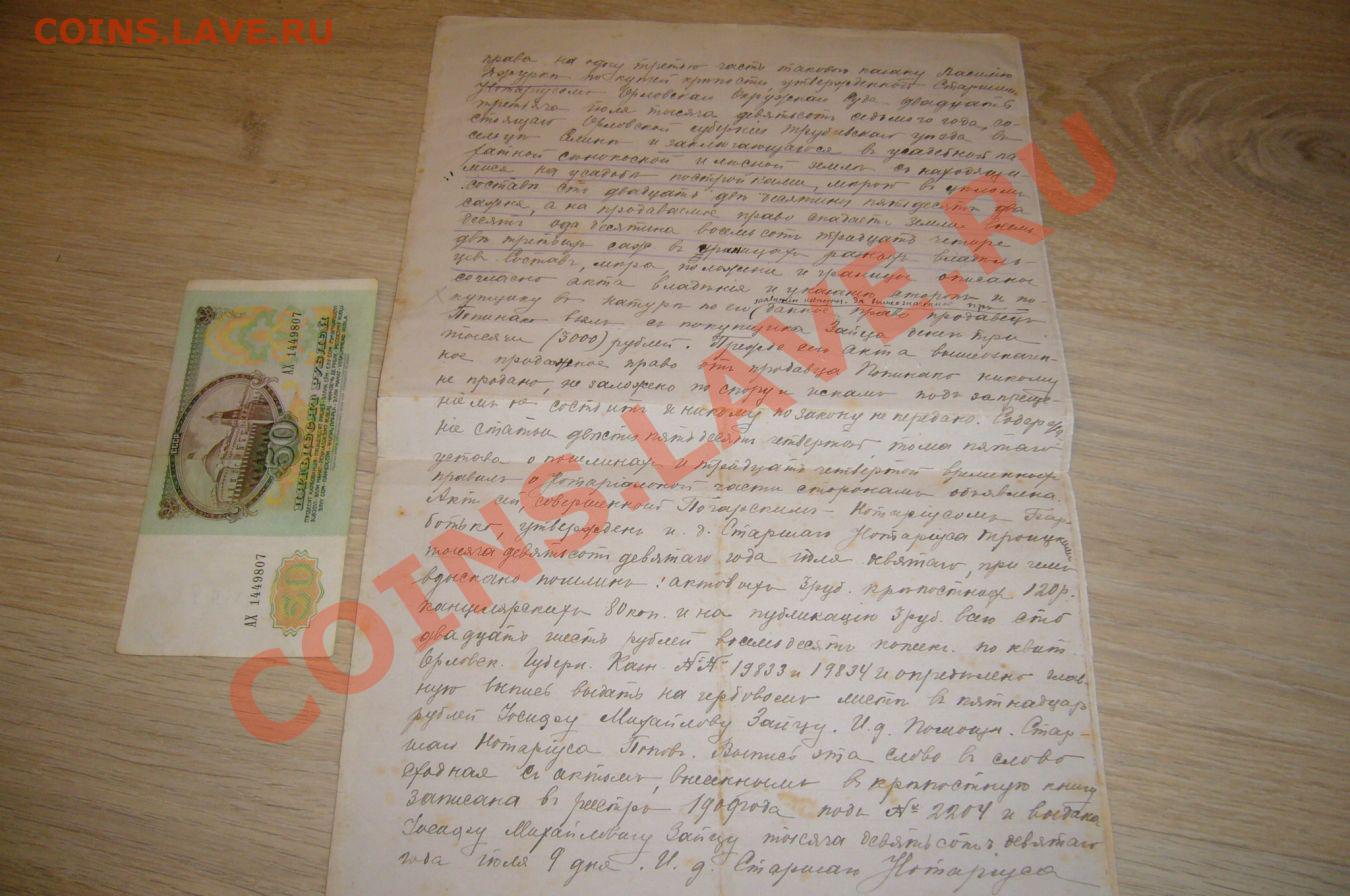 COINS.LAVE.RU
права на одну третью часть такового писану Василию
по купчей крѣпости утвержденной Старшимъ
Нотаріусомъ Орловскаго Окружнаго Суда двадцать
третьяго Іюля тысяча девятьсотъ седьмого года, со-
стоящаго Орловской губерніи Трубчевскаго уѣзда въ
сельцѣ и заключающагося въ усадебной па
хатной сѣнокосной и лѣсной землѣ съ находящи
мися на усадьбѣ постройками, мѣрою въ цѣломъ
составѣ сто двадцать двѣ десятины пятьдесятъ два
сажня, а на продаваемое право спадаетъ земли
десять одна десятина восемьсотъ тридцать четыре
двѣ третьихъ саж въ границахъ разныхъ владѣль-
цевъ. Составъ, мѣра, положеніе и границы описаны
согласно акта владѣнія и указаны и по-
купщику въ натурѣ по его за вышеозначенное
данное право продавецъ
взялъ съ покупщика Зайца денегъ три
тысячи (3000) рублей. Прежде сего Акта вышеозначен-
ное продажное право отъ продавца никому
не продано, не заложено по спору и искамъ подъ запреще-
ніемъ не состоитъ и никому по закону не передано. Содержа-
ніе статьи двѣсти пятьдесятъ четвертой, тома пятаго
устава о пошлинахъ и тридцать четвертой временныхъ
правилъ о Нотаріальной части сторонамъ объявлена.
Актъ сей, совершенный Погарскимъ Нотаріусомъ Гар-
ботько, утвержденъ и. д. Старшаго Нотаріуса Троицкимъ
тысяча девятьсотъ девятаго года іюля девятаго, при чемъ
взыскано пошлинъ: актовыхъ 3 руб. крѣпостныхъ 120 р.
канцелярскихъ 80 коп. и на публикацію 3 руб. всего сто
двадцать шесть рублей восемьдесятъ копеекъ по квит.
Орловск. Губерн. Казн. №№ 19833 и 19834 и опредѣлено глав-
ную выпись выдать на гербовомъ листѣ въ пятнадцать
рублей Іосифу Михайлову Зайцу. И.д. Помощн. Стар-
шаго Нотаріуса Поповъ. Выпись эта слово въ слово
сходная съ актомъ, внесеннымъ въ крѣпостную книгу
записана въ реестръ 1909 года подъ № 2204 и выдана
Іосифу Михайловичу Зайцу тысяча девятьсотъ девятаго
года іюля 9 дня. И. д. Старшаго Нотаріуса
СССР
50
ПЯТЬДЕСЯТ РУБЛЕЙ
АХ 1449807
АХ 1449807
50
COINS.LAVE.RU